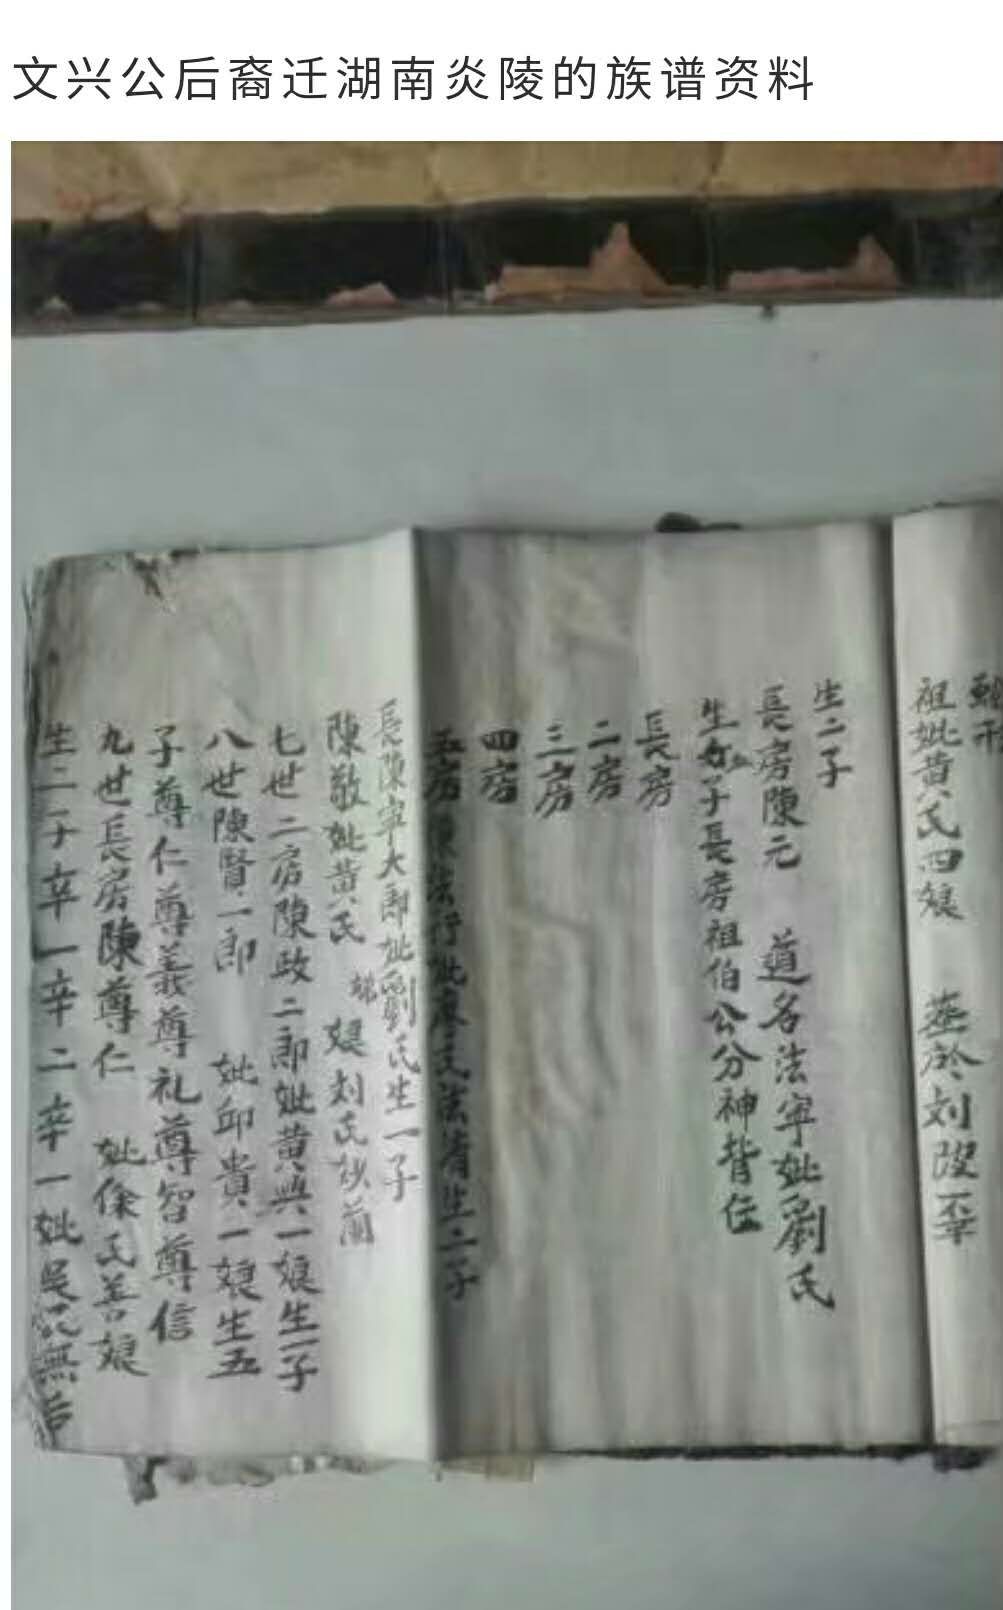 文兴公后裔迁湖南炎陵的族谱资料
祖妣黄氏四娘 葬於刘陂
生二子
長房陳元 道名法寧妣劉氏
生女子長房祖伯公分神背住
長房
二房
三房
四房
五房陳法行妣廖氏法清生二子
長陳寧大郎妣劉氏生一子
陳敬妣黄氏 娘刘氏
七世二房陳政二郎妣黄典一娘生一子
八世陳賢一郎 妣邱貴一娘生五
子尊仁尊義尊礼尊智尊信
九世長房陳尊仁 妣徐氏善娘
生二子辛一辛二辛一妣吴氏無后